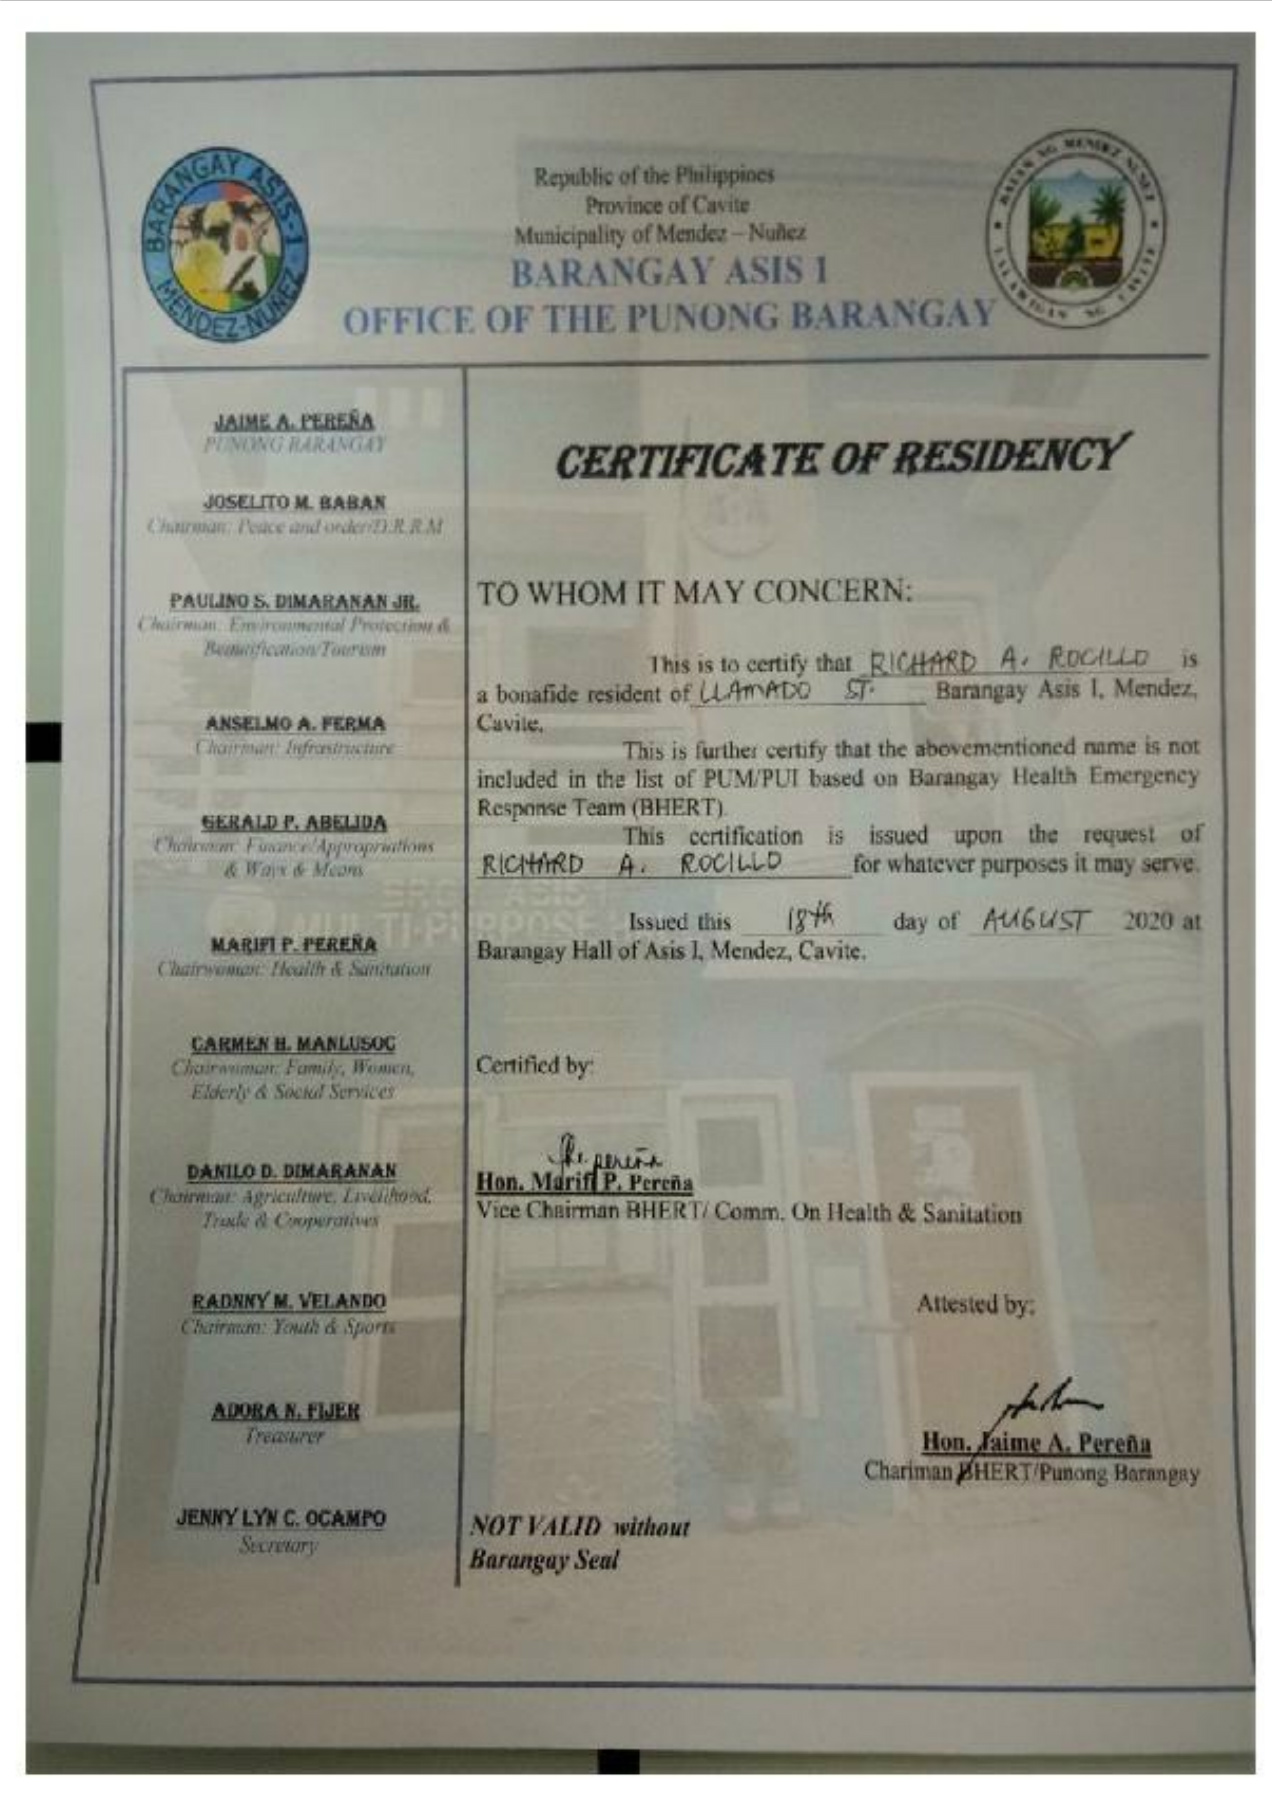 BARANGAY ASIS-1
MENDEZ-NUÑEZ
BAYAN NG MENDEZ NUÑEZ
LALAWIGAN NG CAVITE
Republic of the Philippines
Province of Cavite
Municipality of Mendez – Nuñez
BARANGAY ASIS 1
OFFICE OF THE PUNONG BARANGAY
JAIME A. PEREÑA
PUNONG BARANGAY
JOSELITO M. BABAN
Chairman: Peace and order/D.R.R.M
PAULINO S. DIMARANAN JR.
Chairman: Environmental Protection &
Beautification/Tourism
ANSELMO A. FERMA
Chairman: Infrastructure
GERALD P. ABELIDA
Chairman: Finance/Appropriations
& Ways & Means
MARIFI P. PEREÑA
Chairwoman: Health & Sanitation
CARMEN H. MANLUSOC
Chairwoman: Family, Women,
Elderly & Social Services
DANILO D. DIMARANAN
Chairman: Agriculture, Livelihood,
Trade & Cooperatives
RADNNY M. VELANDO
Chairman: Youth & Sports
ADORA N. FIJER
Treasurer
JENNY LYN C. OCAMPO
Secretary
CERTIFICATE OF RESIDENCY
TO WHOM IT MAY CONCERN:
This is to certify that RICHARD A. ROCILLO is
a bonafide resident of LLAMADO ST. Barangay Asis 1, Mendez,
Cavite.
This is further certify that the abovementioned name is not
included in the list of PUM/PUI based on Barangay Health Emergency
Response Team (BHERT).
This certification is issued upon the request of
RICHARD A. ROCILLO for whatever purposes it may serve.
Issued this 18th day of AUGUST 2020 at
Barangay Hall of Asis 1, Mendez, Cavite.
MULTI-PURPOSE
Certified by:
pereña
Hon. Marifi P. Pereña
Vice Chairman BHERT/ Comm. On Health & Sanitation
Attested by:
Hon. Jaime A. Pereña
Chariman BHERT/Punong Barangay
NOT VALID without
Barangay Seal